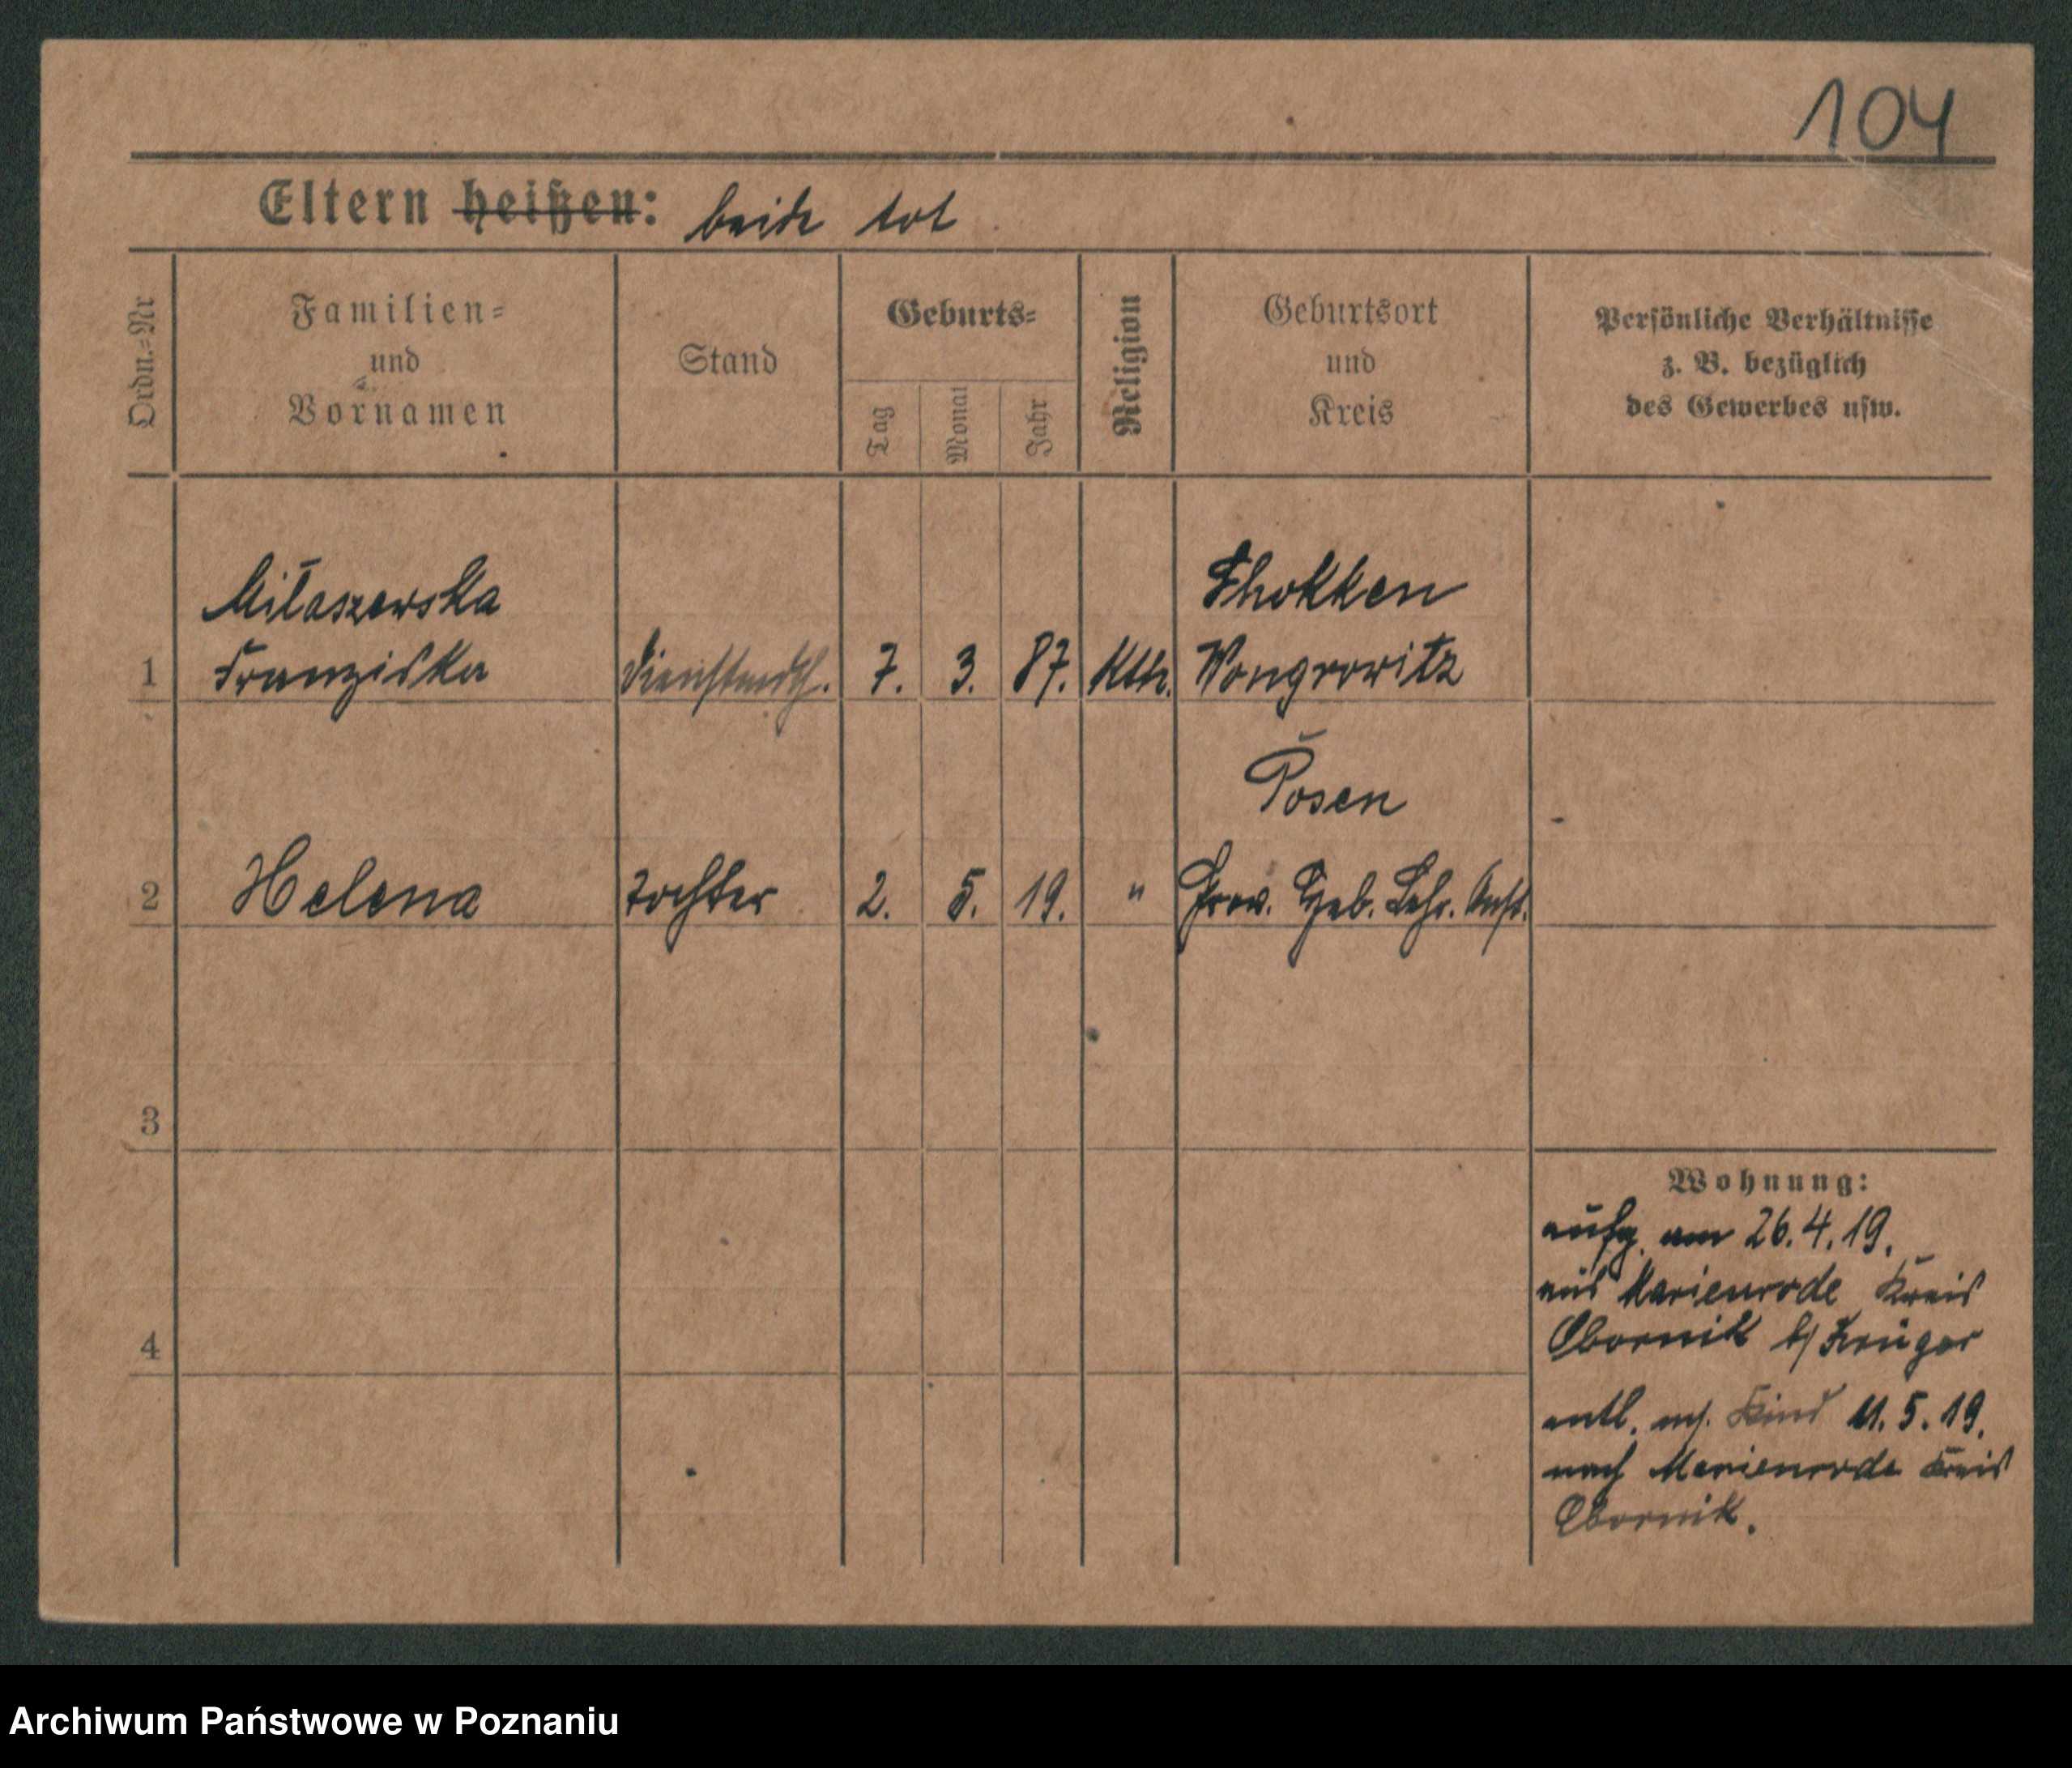 104
Eltern heißen: beide tot
Ordn.-Nr
Familien-
und
Vornamen
Stand
Geburts-
Tag
Monat
Jahr
Religion
Geburtsort
und
Kreis
Persönliche Verhältnisse
z. B. bezüglich
des Gewerbes usw.
Miłaszewska
Schokken
1 Franziska Dienstmdch. 7. 3. 87. Kth. Wongrowitz
Posen
2 Helena Tochter 2. 5. 19. " Prov. Heb. Lehr. Anst.
3
Wohnung:
aufg. am 26.4.19.
aus Marienrode Kreis
4
Obornik b/ Krüger
entl. m/. Kind 11.5.19.
nach Marienrode Kreis
Obornik.
Archiwum Państwowe w Poznaniu